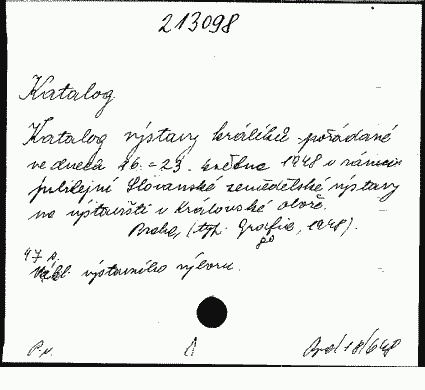 213098
Katalog
Katalog výstavy králíků pořádané
ve dnech 16.-23. května 1948 v rámci
jubilejní Slovanské zemědělské výstavy
na výstavišti v Královské oboře.
Praha, (typ. Grafia, 1948).
8°
47 s.
Nákl. výstavního výboru.